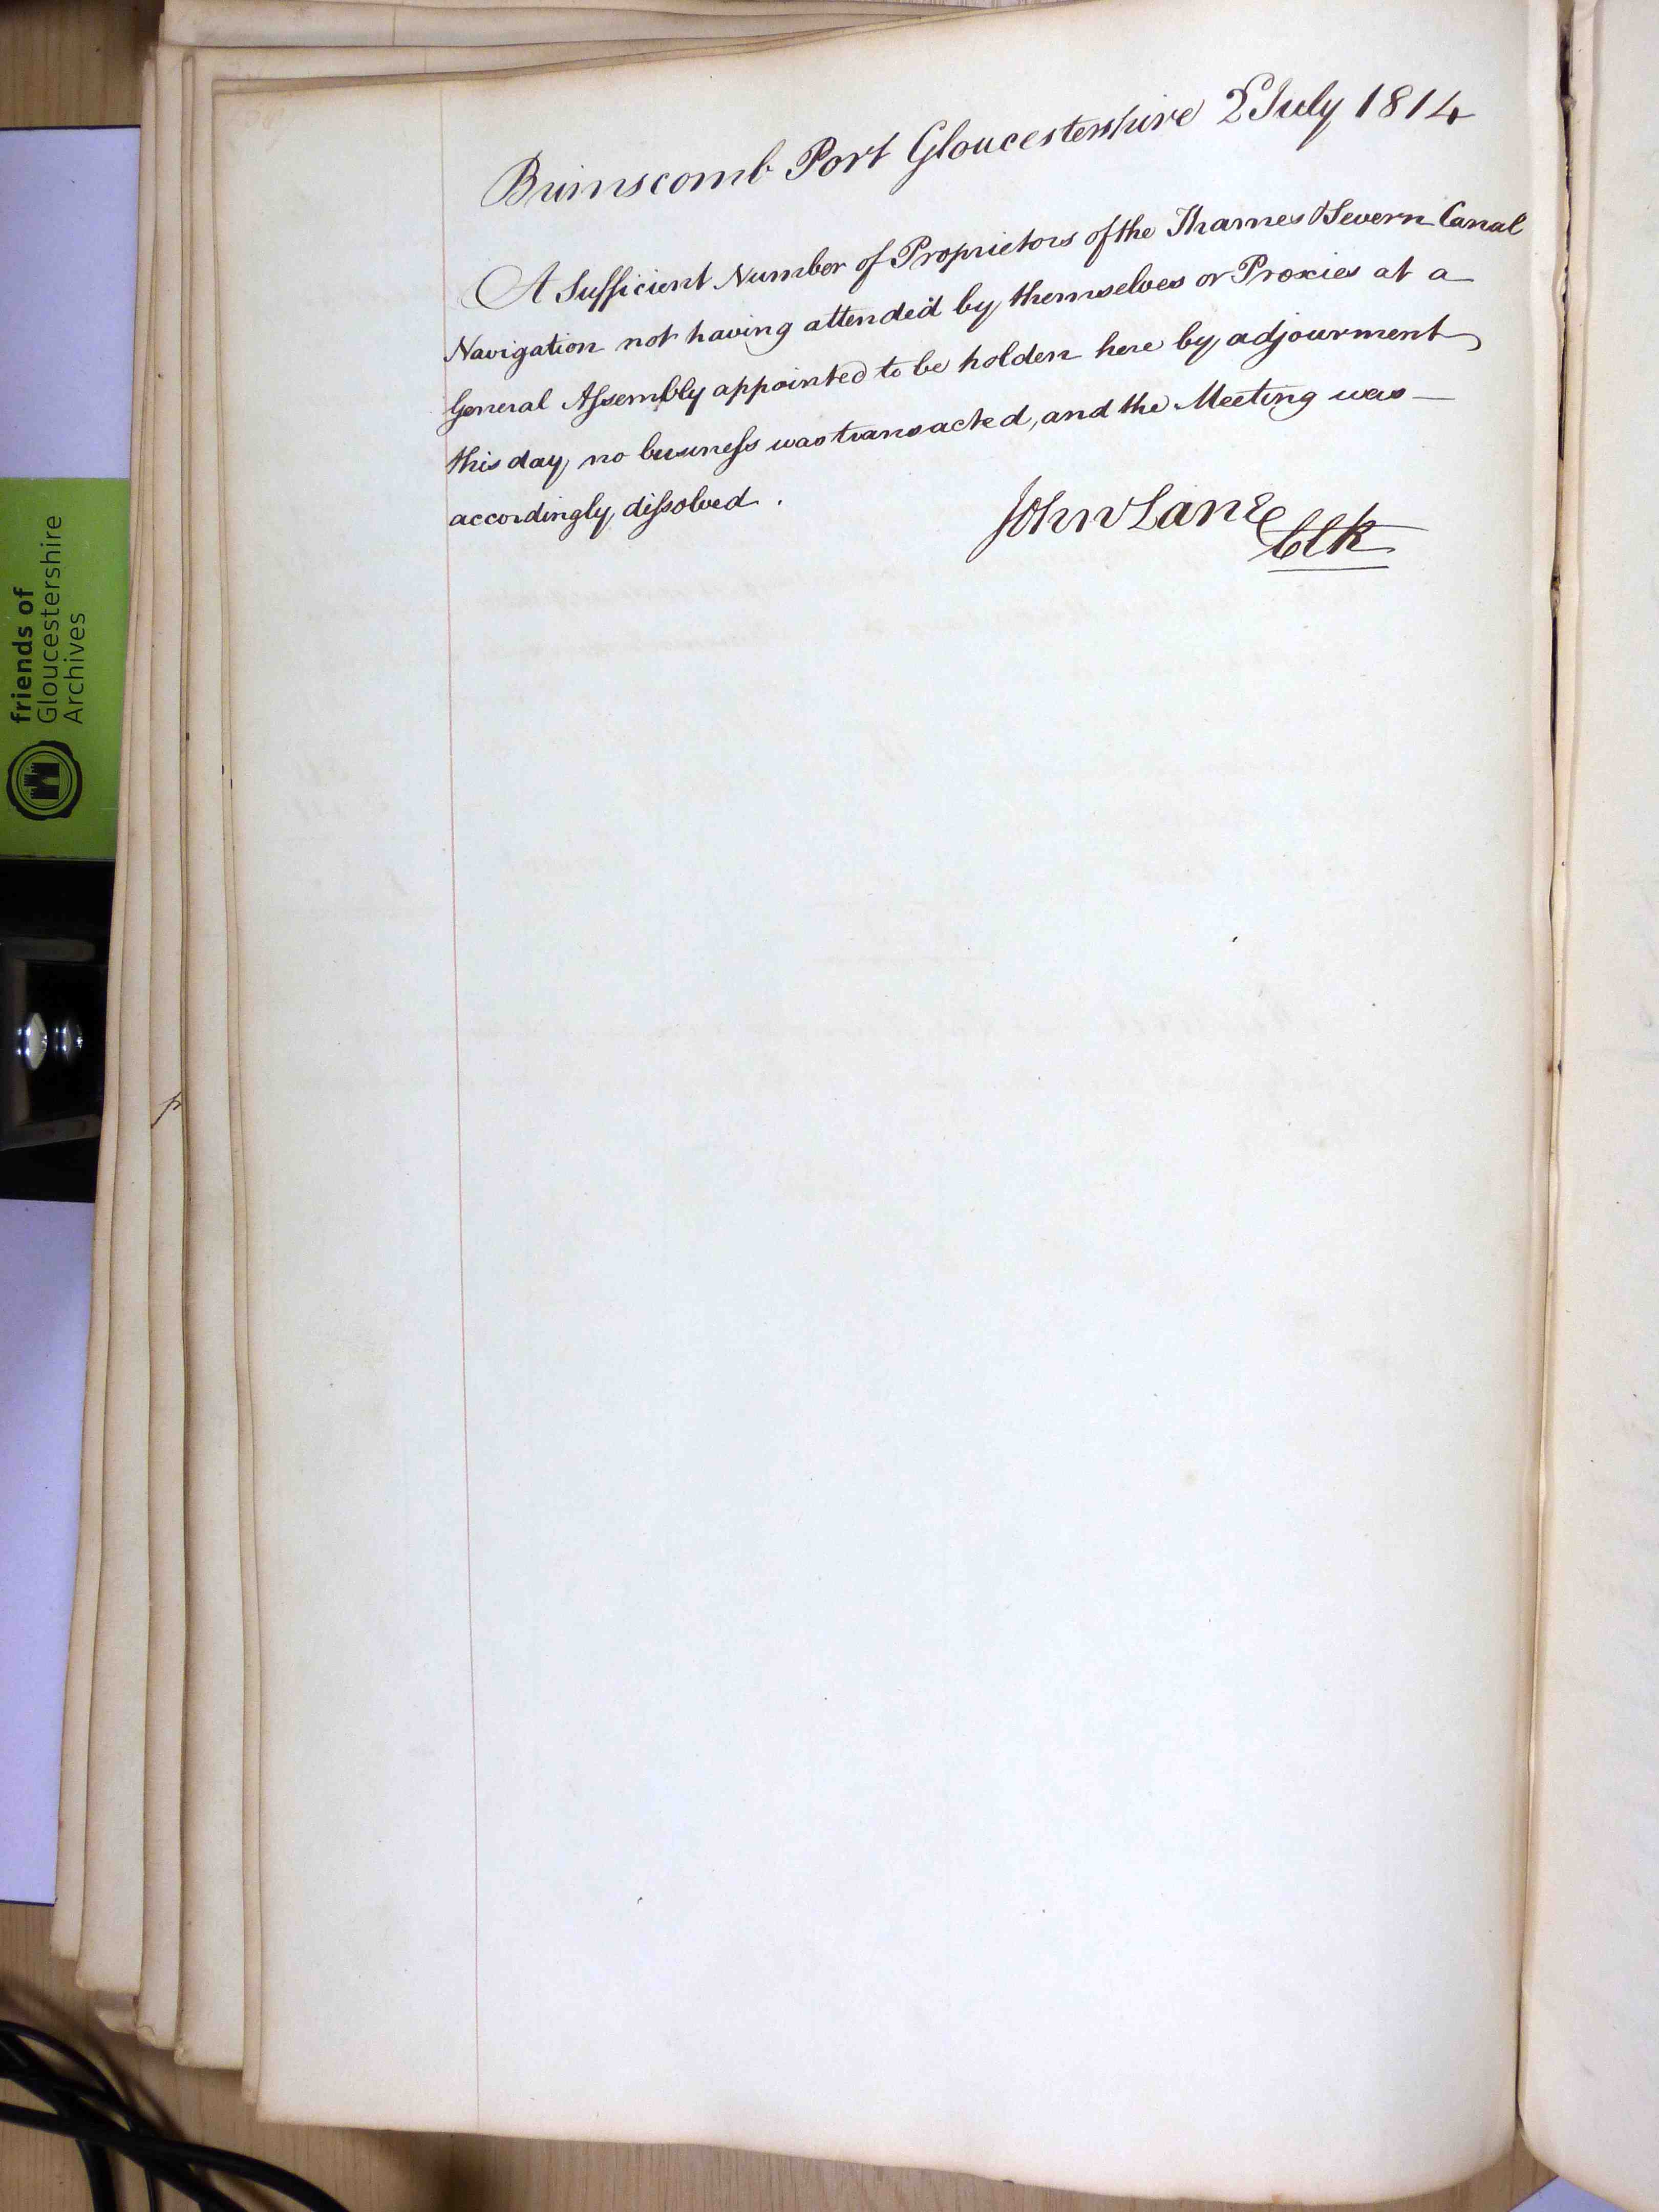 Brimscomb Port Gloucestershire 2d July 1814
A Sufficient Number of Proprietors of the Thames & Severn Canal
Navigation not having attended by themselves or Proxies at a
General Assembly appointed to be holden here by adjourment
this day, no business was transacted, and the Meeting was —
accordingly dissolved .
John Lane
Clk
friends of
Gloucestershire
Archives